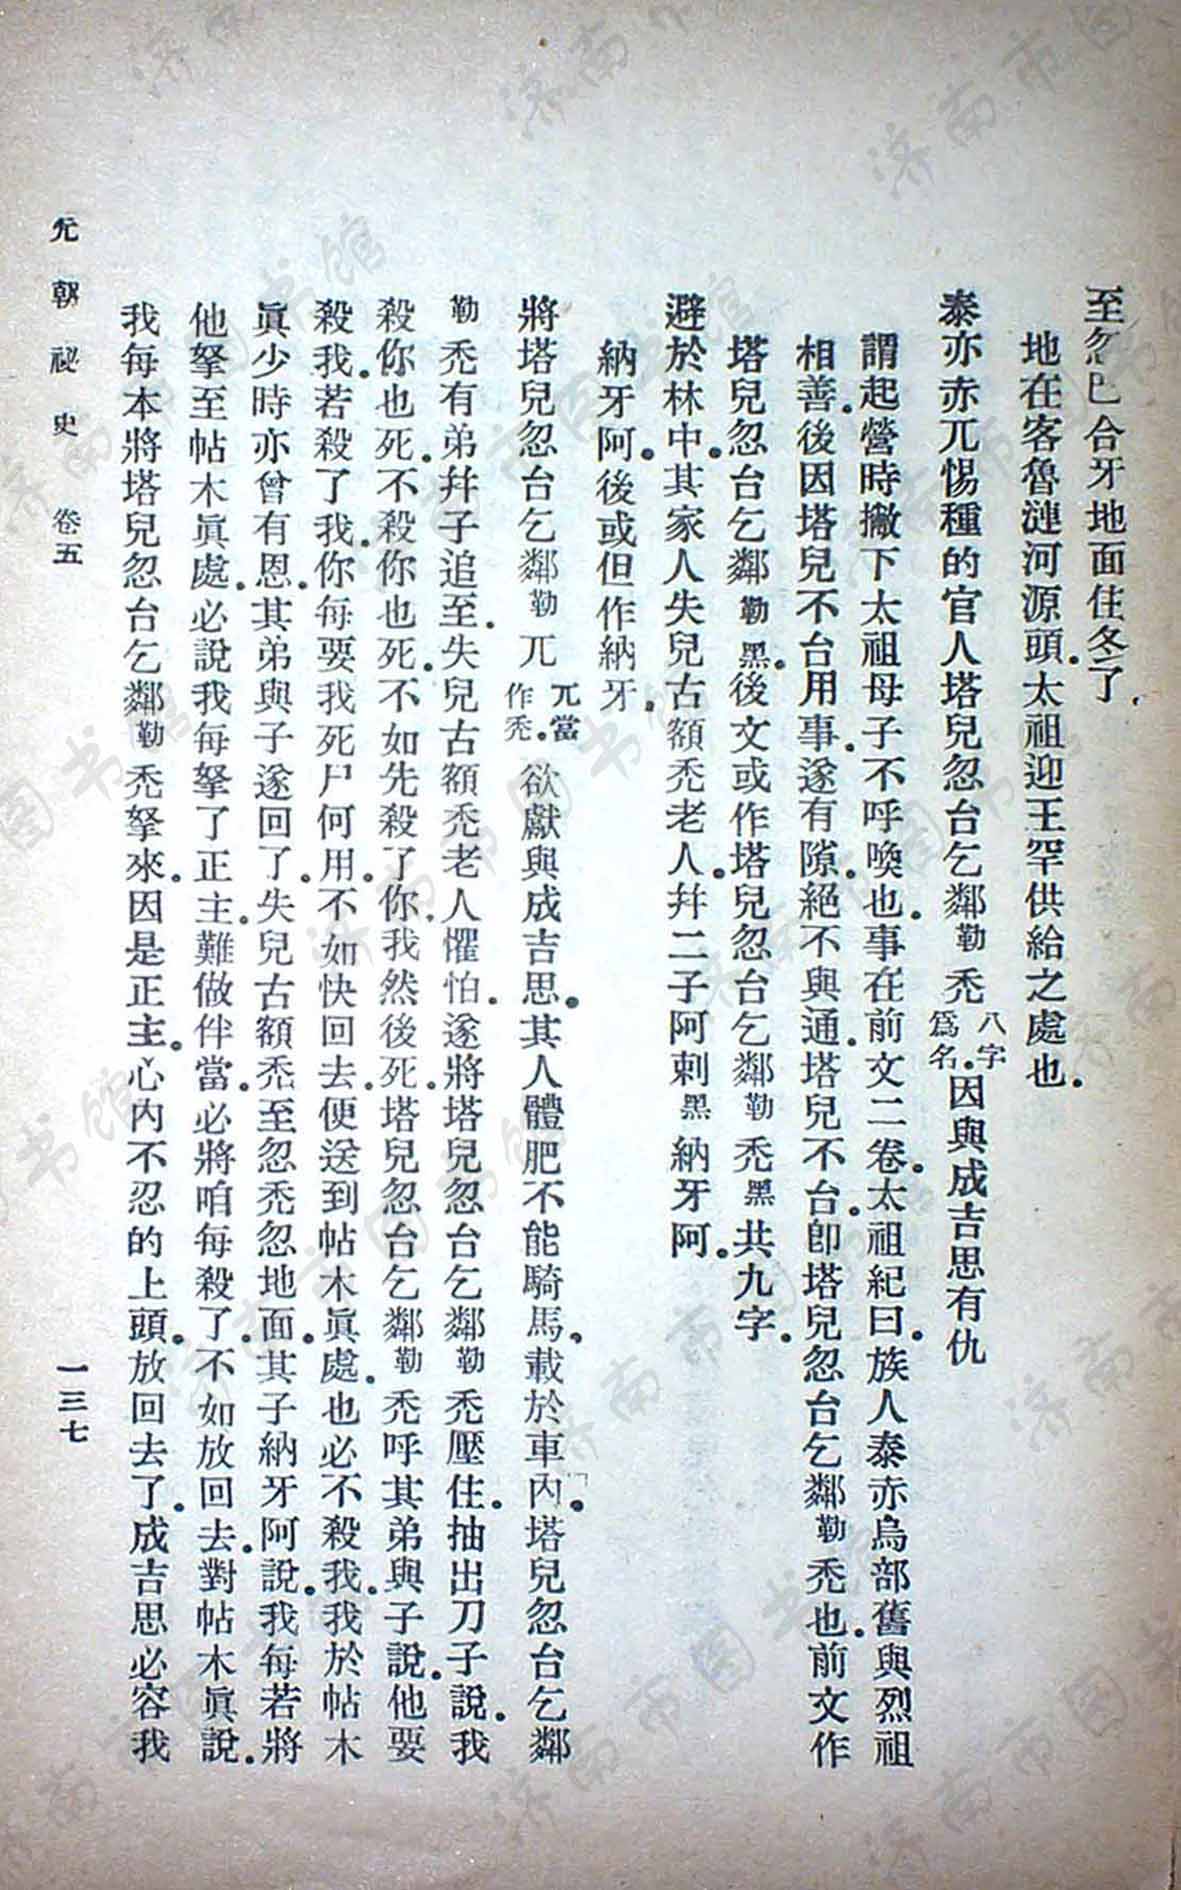 至忽巴合牙地面住冬了。
地在客魯漣河源頭。太祖迎王罕供給之處也。
泰亦赤兀惕種的官人塔兒忽台乞鄰勒禿八字爲名。因與成吉思有仇
謂起營時撇下太祖母子不呼喚也。事在前文二卷。太祖紀曰。族人泰赤烏部舊與烈祖
相善。後因塔兒不台用事。遂有隙。絕不與通。塔兒不台。卽塔兒忽台乞鄰勒禿也。前文作
塔兒忽台乞鄰勒黑。後文或作塔兒忽台乞鄰勒禿黑共九字。
避於林中。其家人失兒古額禿老人。幷二子阿剌黑納牙阿。
納牙阿。後或但作納牙。
將塔兒忽台乞鄰勒兀兀當作禿。欲獻與成吉思。其人體肥不能騎馬。載於車內。塔兒忽台乞鄰
勒禿有弟幷子追至。失兒古額禿老人懼怕。遂將塔兒忽台乞鄰勒禿壓住。抽出刀子說。我
殺你也死。不殺你也死。不如先殺了你。我然後死。塔兒忽台乞鄰勒禿呼其弟與子說。他要
殺我。若殺了我。你每要我死尸何用。不如快回去。便送到帖木眞處。也必不殺我。我於帖木
眞少時亦曾有恩。其弟與子遂回了。失兒古額禿至忽禿忽地面。其子納牙阿說。我每若將
他拏至帖木眞處。必說我每拏了正主。難做伴當。必將咱每殺了。不如放回去。對帖木眞說。
我每本將塔兒忽台乞鄰勒禿拏來。因是正主。心內不忍的上頭。放回去了。成吉思必容我
元朝祕史 卷五 一三七